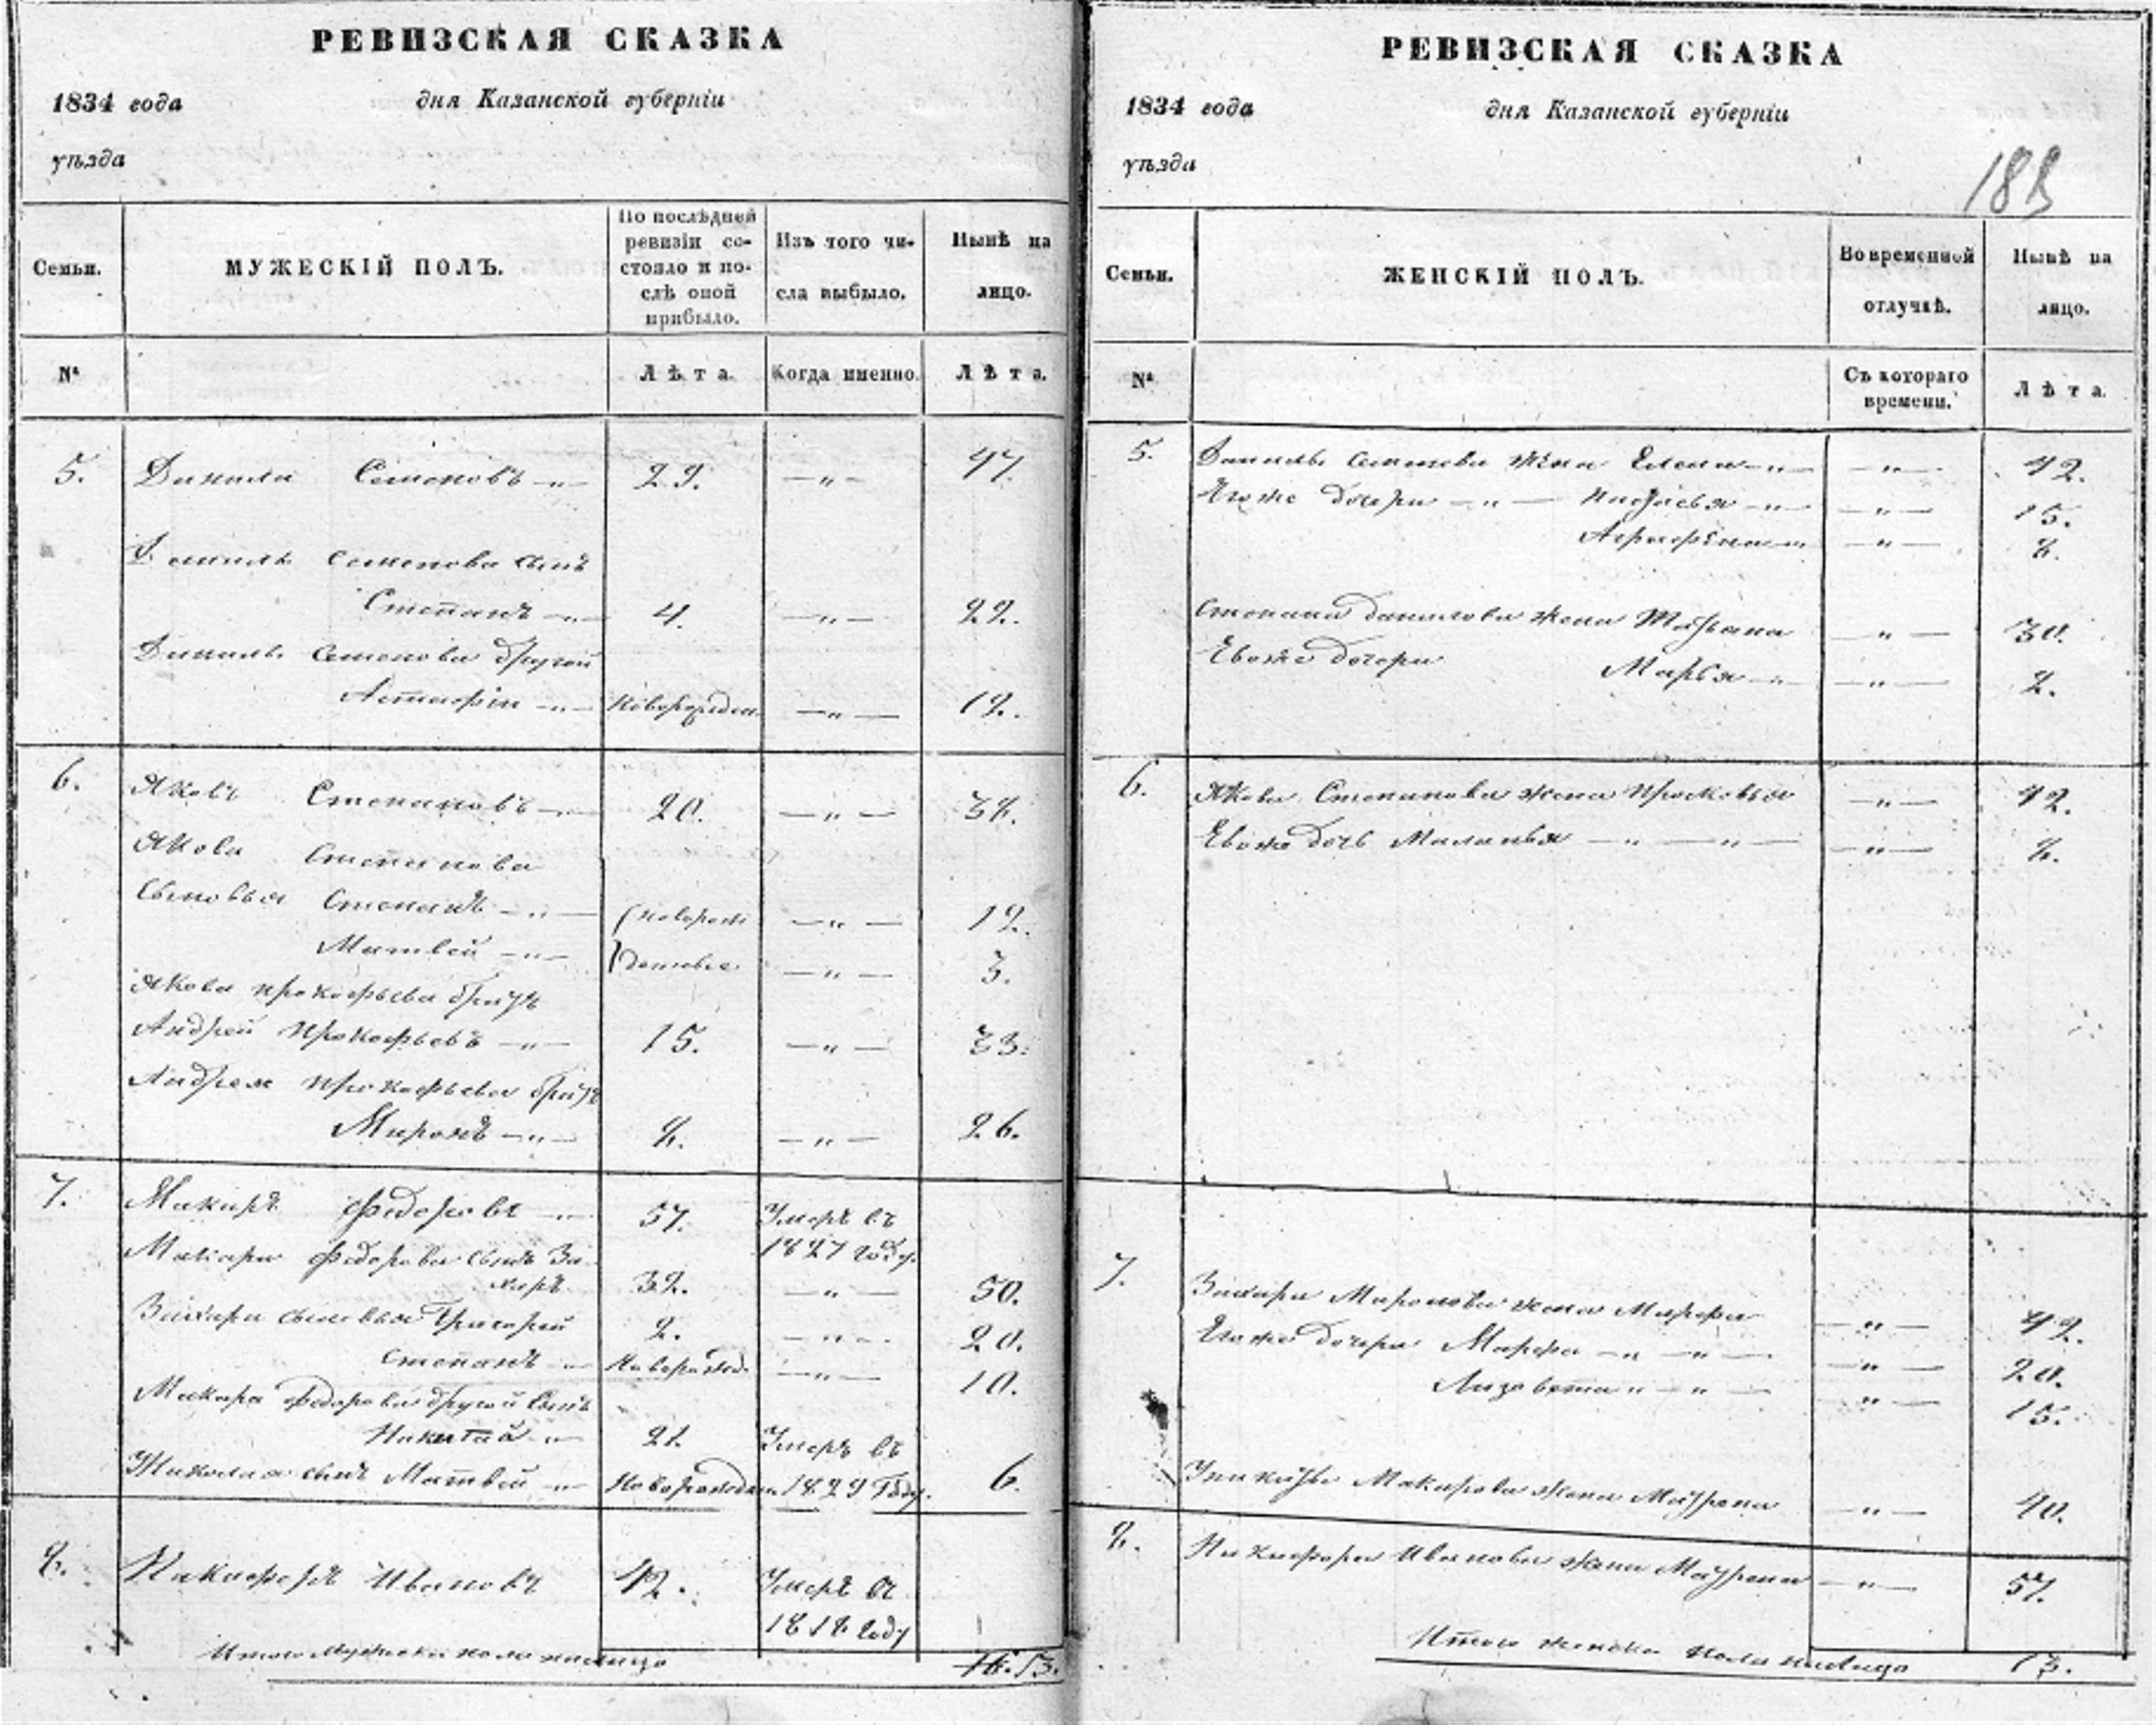 РЕВИЗСКАЯ СКАЗКА
1834 года дня Казанской губерніи
уѣзда
Семьи. МУЖЕСКІЙ ПОЛЪ. По послѣдней ревизіи состояло и послѣ оной прибыло. Изъ того числа выбыло. Нынѣ на лицо.
№ Лѣта. Когда именно. Лѣта.
5. Данила Семеновъ 29. 47.
Данилы Семенова сынъ
Степанъ 4. 22.
Данилы Семенова другой
Астафiй новорожден 12.
6. Яковъ Степановъ 20. 38.
Якова Степанова
сыновья Степанъ новорож 12.
Матвей денные 3.
Якова Прокофьева братъ
Андрей Прокофьевъ 15. 33.
Андрея Прокофьева братъ
Миронъ 8. 26.
7. Макаръ Федоровъ 57. Умеръ въ
1827 году.
Макара Федорова сынъ За-
харъ 32. 50.
Захара сыновья Григорей 2. 20.
Степанъ новорожд. 10.
Макара Федорова другой сынъ
Никитай 21. Умеръ въ
сынъ Матвей Новорожден 1829 Году. 6.
8. Никифоръ Ивановъ 42. Умеръ въ
1818 году
Итого мужеска пола налицо 16. 13.
РЕВИЗСКАЯ СКАЗКА
1834 года дня Казанской губерніи
уѣзда
188
Семьи. ЖЕНСКІЙ ПОЛЪ. Во временной отлучкѣ. Нынѣ на лицо.
№ Съ котораго времени. Лѣта.
5. Данилы Семенова жена Елена 42.
Егоже дочери Настасья 15.
Аграфена 8.
Степана Данилова жена Татьяна 30.
Евоже дочери Марья 2.
6. Якова Степанова жена Прасковья 42.
Евоже дочь Маланья 8.
7. Захара жена Марфа 49.
Егоже дочери Марфа 20.
Лизавета 15.
Макарова жена Матрена 40.
8. Никифора Иванова жена Матрена 57.
Итого женска пола налицо 13.